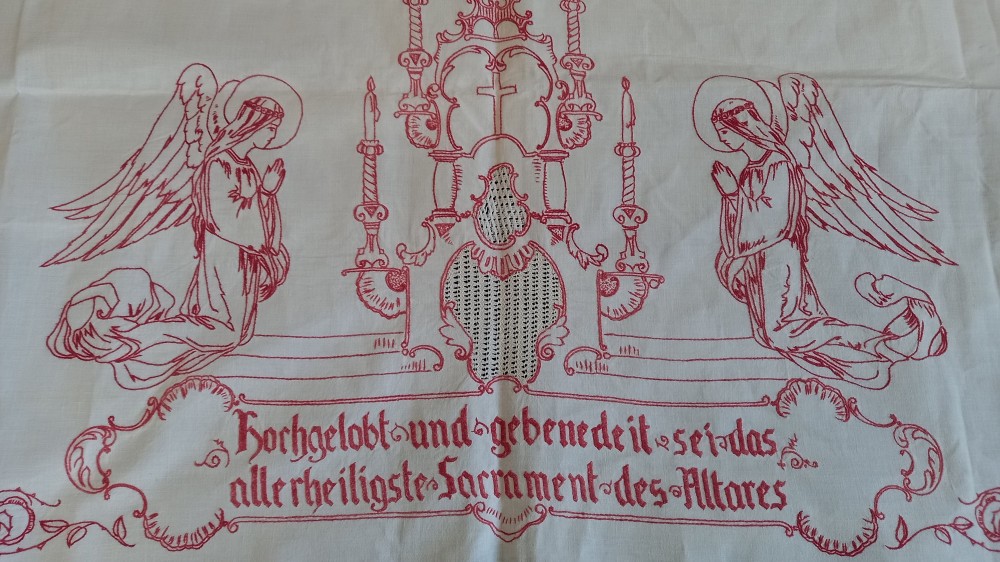 Hochgelobt und gebenedeit sei das
allerheiligste Sacrament des Altares